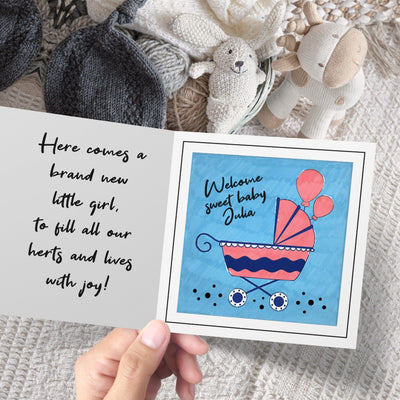 Here comes a
brand new
little girl,
to fill all our
herts and lives
with joy!
Welcome
sweet baby
Julia